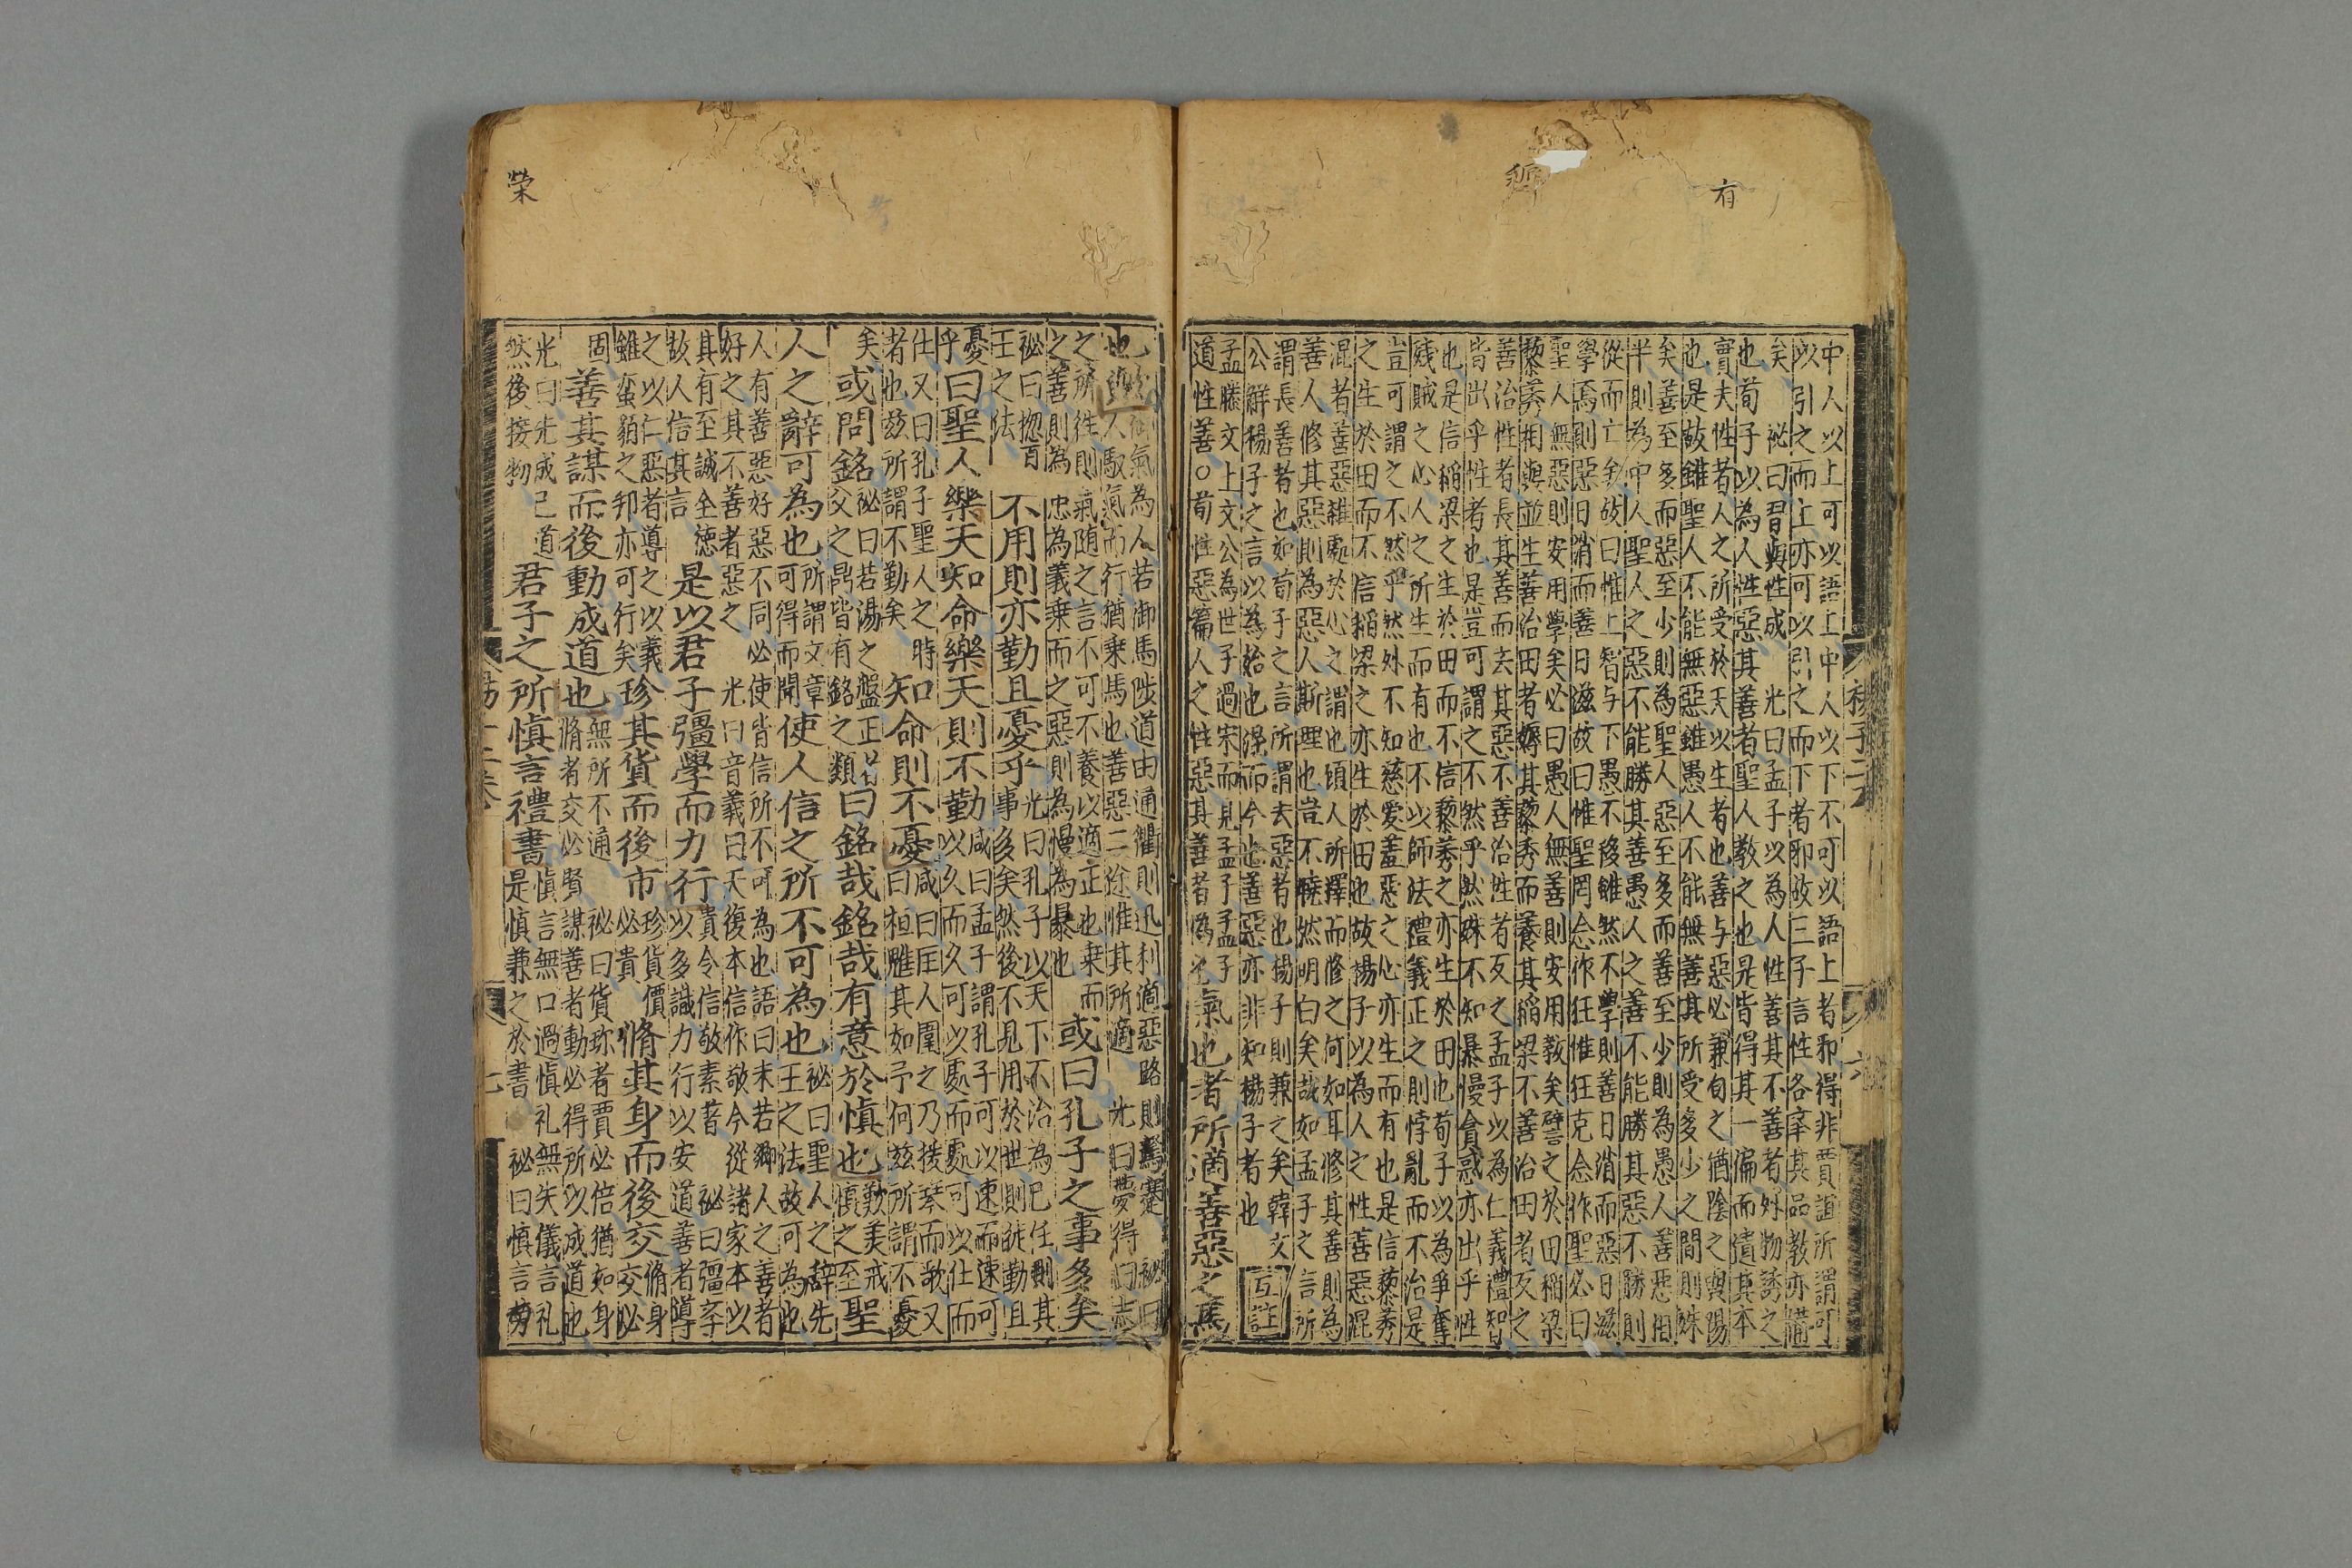 有
中人以上可以語上中人以下不可以語上者邪得非賈誼所謂可
以引之而上亦可以引之而下者邪故三子言性各率其品教亦備
矣　祕曰習慎性成　光曰孟子以為人性善其不善者外物誘之
也荀子以為人性惡其善者聖人教之也是皆得其一偏而遺其本
實夫性者人之所受於天以生者也善与惡必兼有之猶陰之與陽
也是故雖聖人不能無惡雖愚人不能無善其所受多少之間則殊
矣善至多而惡至少則為聖人惡至多而善至少則為愚人善惡相
半則為中人聖人之惡不能勝其善愚人之善不能勝其惡不勝則
從而亡矣故曰惟上智与下愚不移雖然不學則善日消而惡日滋
學焉則惡日消而善日滋故曰惟聖罔念作狂惟狂克念作聖必曰
聖人無惡則安用學矣必曰愚人無善則安用教矣譬之於田稻粱
藜莠相與並生善治田者耨其藜莠而養其稻粱不善治田者反之
善治性者長其善而去其惡不善治性者反之孟子以為仁義禮智
皆出乎性者也是豈可謂之不然乎然殊不知暴慢貪惑亦出乎性
也是信稻粱之生於田而不信藜莠之亦生於田也荀子以為爭奪
殘賊之心人之所生而有也不以師法禮義正之則悖亂而不治是
豈可謂之不然乎然殊不知慈愛羞惡之心亦生而有也是信藜莠
之生於田而不信稻粱之亦生於田也故揚子以為人之性善惡混
混者善惡雜處於心之謂也顧人所擇而修之何如耳修其善則為
善人修其惡則為惡人斯理也豈不曉然明白矣哉如孟子之言所
謂長善者也如荀子之言所謂去惡者也揚子則兼之矣韓文
公解楊子之言以為始也混而今也善惡亦非知楊子者也　互註
孟滕文上文公為世子過宋而見孟子孟子
道性善○荀性惡篇人之性惡其善者偽也
氣也者所適善惡之馬
也
御氣為人若御馬陟道由通衢則迅利適惡路則駑蹇　祕曰
人馭氣而行猶乘馬也善惡二途惟其所適　光曰夢得曰志
之所往則氣隨之言不可不養以適正也乗而
之善則為忠為義乗而之惡則為慢為暴也
或曰孔子之事多矣
不用則亦勤且憂乎
祕曰揔百
王之法
光曰孔子以天下不治為己任則其
事多矣然後不見用於世則徒勤且
憂
乎
曰聖人樂天知命樂天則不勤
咸曰孟子謂孔子可以速而速可
以久而久可以處而處可以仕而
仕又曰孔子聖人之時
者也兹所謂不勤矣
知命則不憂
咸曰匡人圍之乃援琴而歌又
曰桓魋其如予何兹所謂不憂
矣
或問銘
祕曰若湯之盤正
父之鼎皆有銘之類
曰銘哉銘哉有意於慎也
歎美戒
慎之至
聖
人之辭可為也
所謂文章
可得而聞
使人信之所不可為也
祕曰聖人之辭先
王之法故可為也
人有善惡好惡不同必使皆信所不可為也語曰末若鄉人之善者
好之其不善者惡之　光曰音義曰天復本信作敬今從諸家本以
其有至誠全德
故人信其言
是以君子彊學而力行
貴令信敬素著　祕曰彊學
以多識力行以安道善者導
之以仁惡者導之以義
雖蛮貊之邦亦可行矣
珍其貨而後市
珍貨價
必貴
脩其身而後交
脩身
交必
固
善其謀而後動成道也
無所不通　祕曰貨珍者賈必倍猶如身
脩者交必賢謀善者動必得所以成道也
光曰先成己道
然後接物
君子之所慎言禮書
慎言無口過慎礼無失儀言礼
是慎兼之於書　祕曰慎言
榮